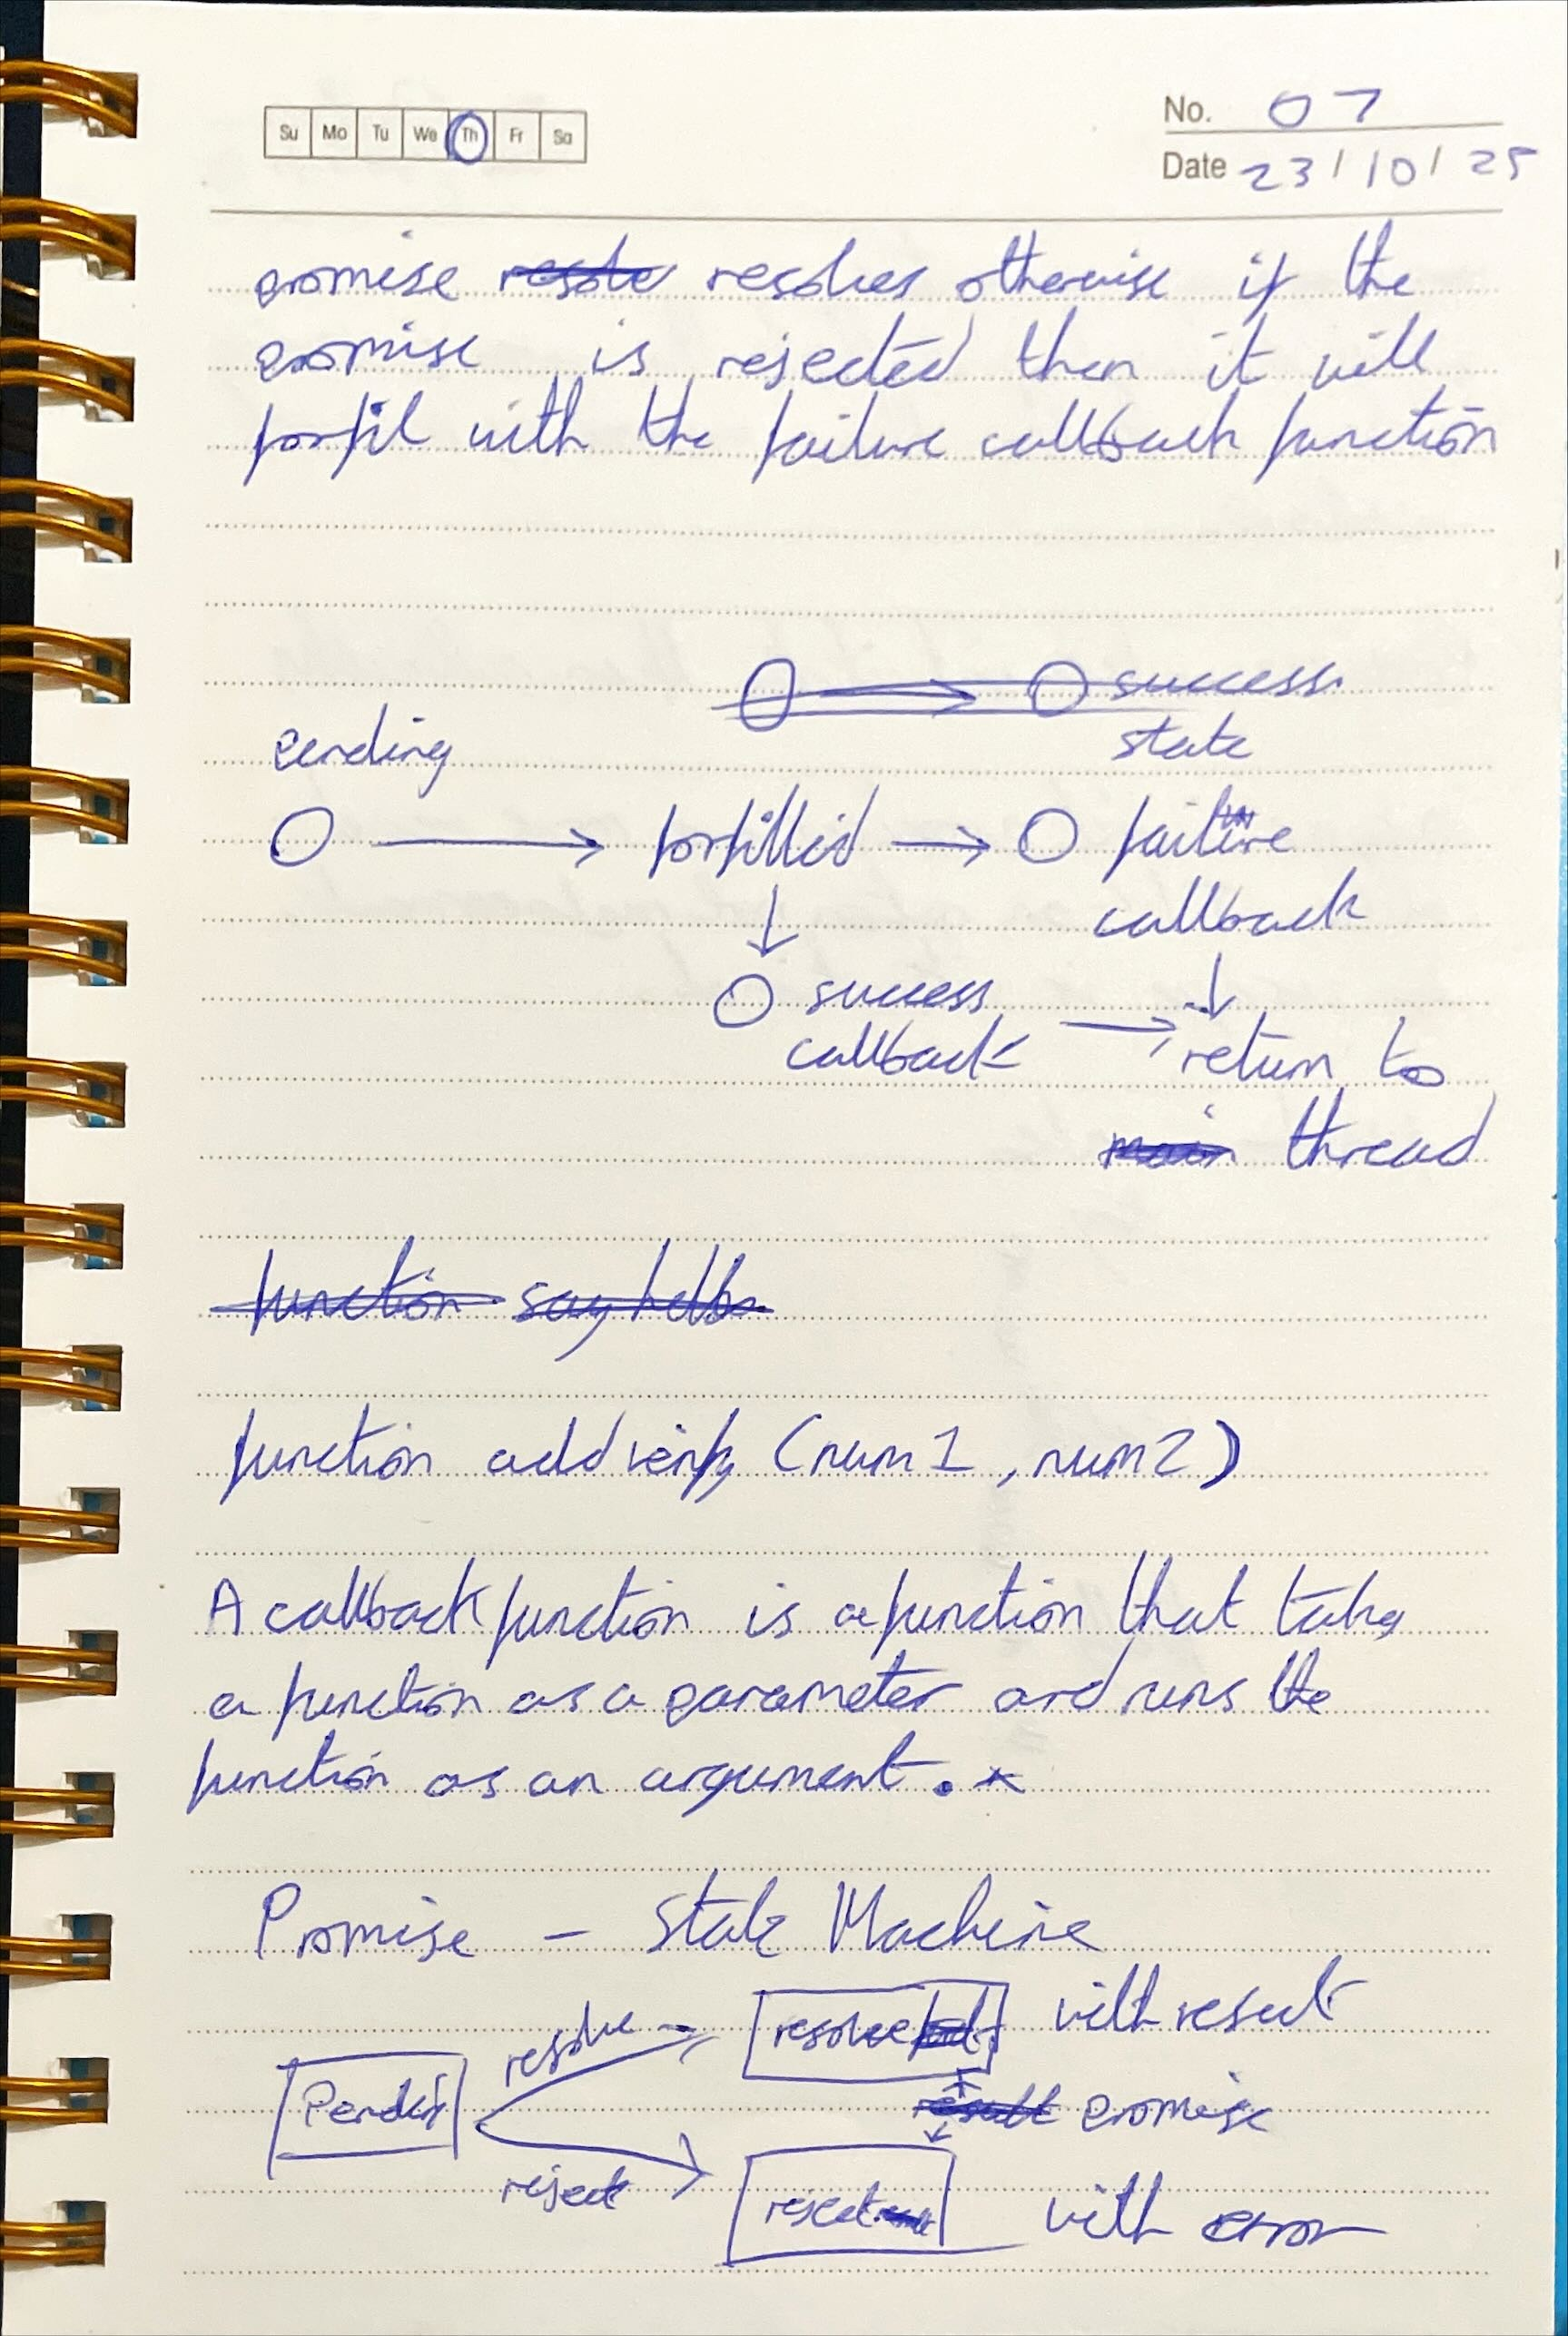 Su Mo Tu We Th Fr Sa
No. 07
Date 23/10/25
promise resolve resolves otherwise if the
promise is rejected then it will
forfil with the failure callback function
success
state
pending
forfilled failure
callback
success
callback
return to
main thread
function sayhello
function addverify (num1, num2)
A callback function is a function that takes
a function as a parameter and runs the
function as an argument. *
Promise - State Machine
resolve resolve with result
Pending
result promise
reject
reject with error